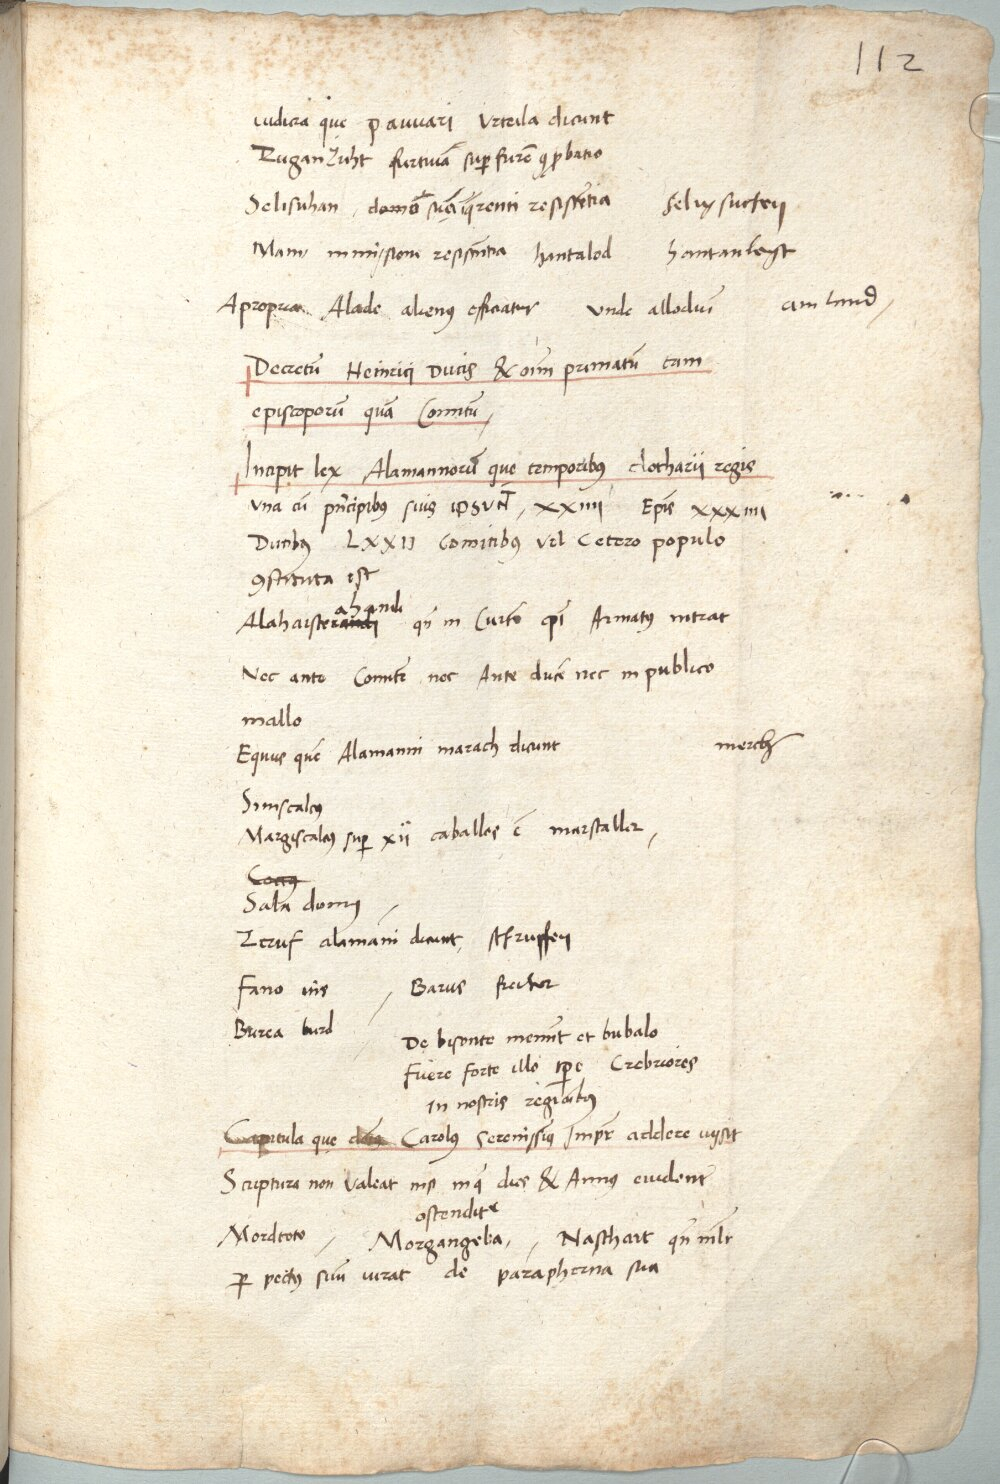 112
iudicia que pauuari Urteila dicunt
Zugan Zuht furtiuā sup furē probatio
Selisuhan, domō suā qrenti resistētia Selig suchen
Man missioni resistētia hantalod hantanlegst
A propria Alode alienus efficiatur vnde allodiū
Decretū Heinrici Ducis & oīm primatū tam
episcoporū quā Comitū,
Incipit lex Alamannorū que temporibus clotharij regis
vna cū prīcipibus suis id SUNT, XXXIIII Epīs XXXIIII
Ducibus LXXII Comitibus vel Cetero populo
9stituta est
ahandi
Alahaistenandi qn in Curtē Armatus intrat
Nec ante Comitē nec Ante ducē nec in publico
mallo
Equus quē Alamanni marach dicunt merch
Siniscalcus
Margiscalcus sup xii caballos ē marstaller,
Cocus
Sala domus,
Zcruf alamāni dicunt,
Fano ius, Barus
Burca burd
De bisonte meminit et bubalo
Fuere forte illo tpe Crebriores
in nostris regionibus
Capitula que dn̄s Carolus Serenissimus Impr addere iussit
Scriptura non Valeat nisi in q dies & Annus euident
ostenditr
Mordtoto, Morgangeba, Nasthait qn mlr
p pectus suū iurat de parapherna sua